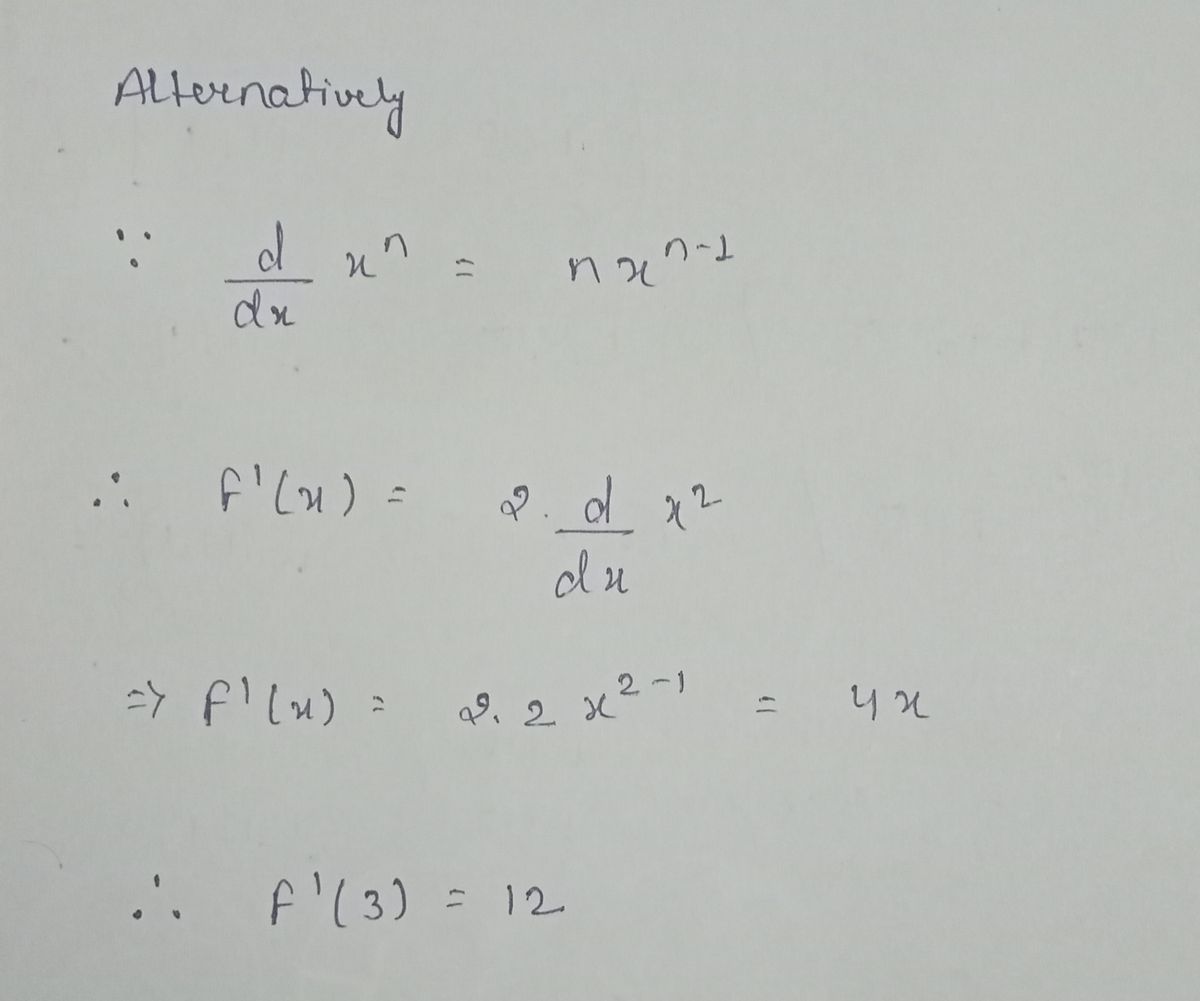 Alternatively
∵ d/dx x^n = nx^(n-1)
∴ f'(x) = 2. d/dx x^2
=> f'(x) = 2. 2 x^(2-1) = 4x
∴ f'(3) = 12